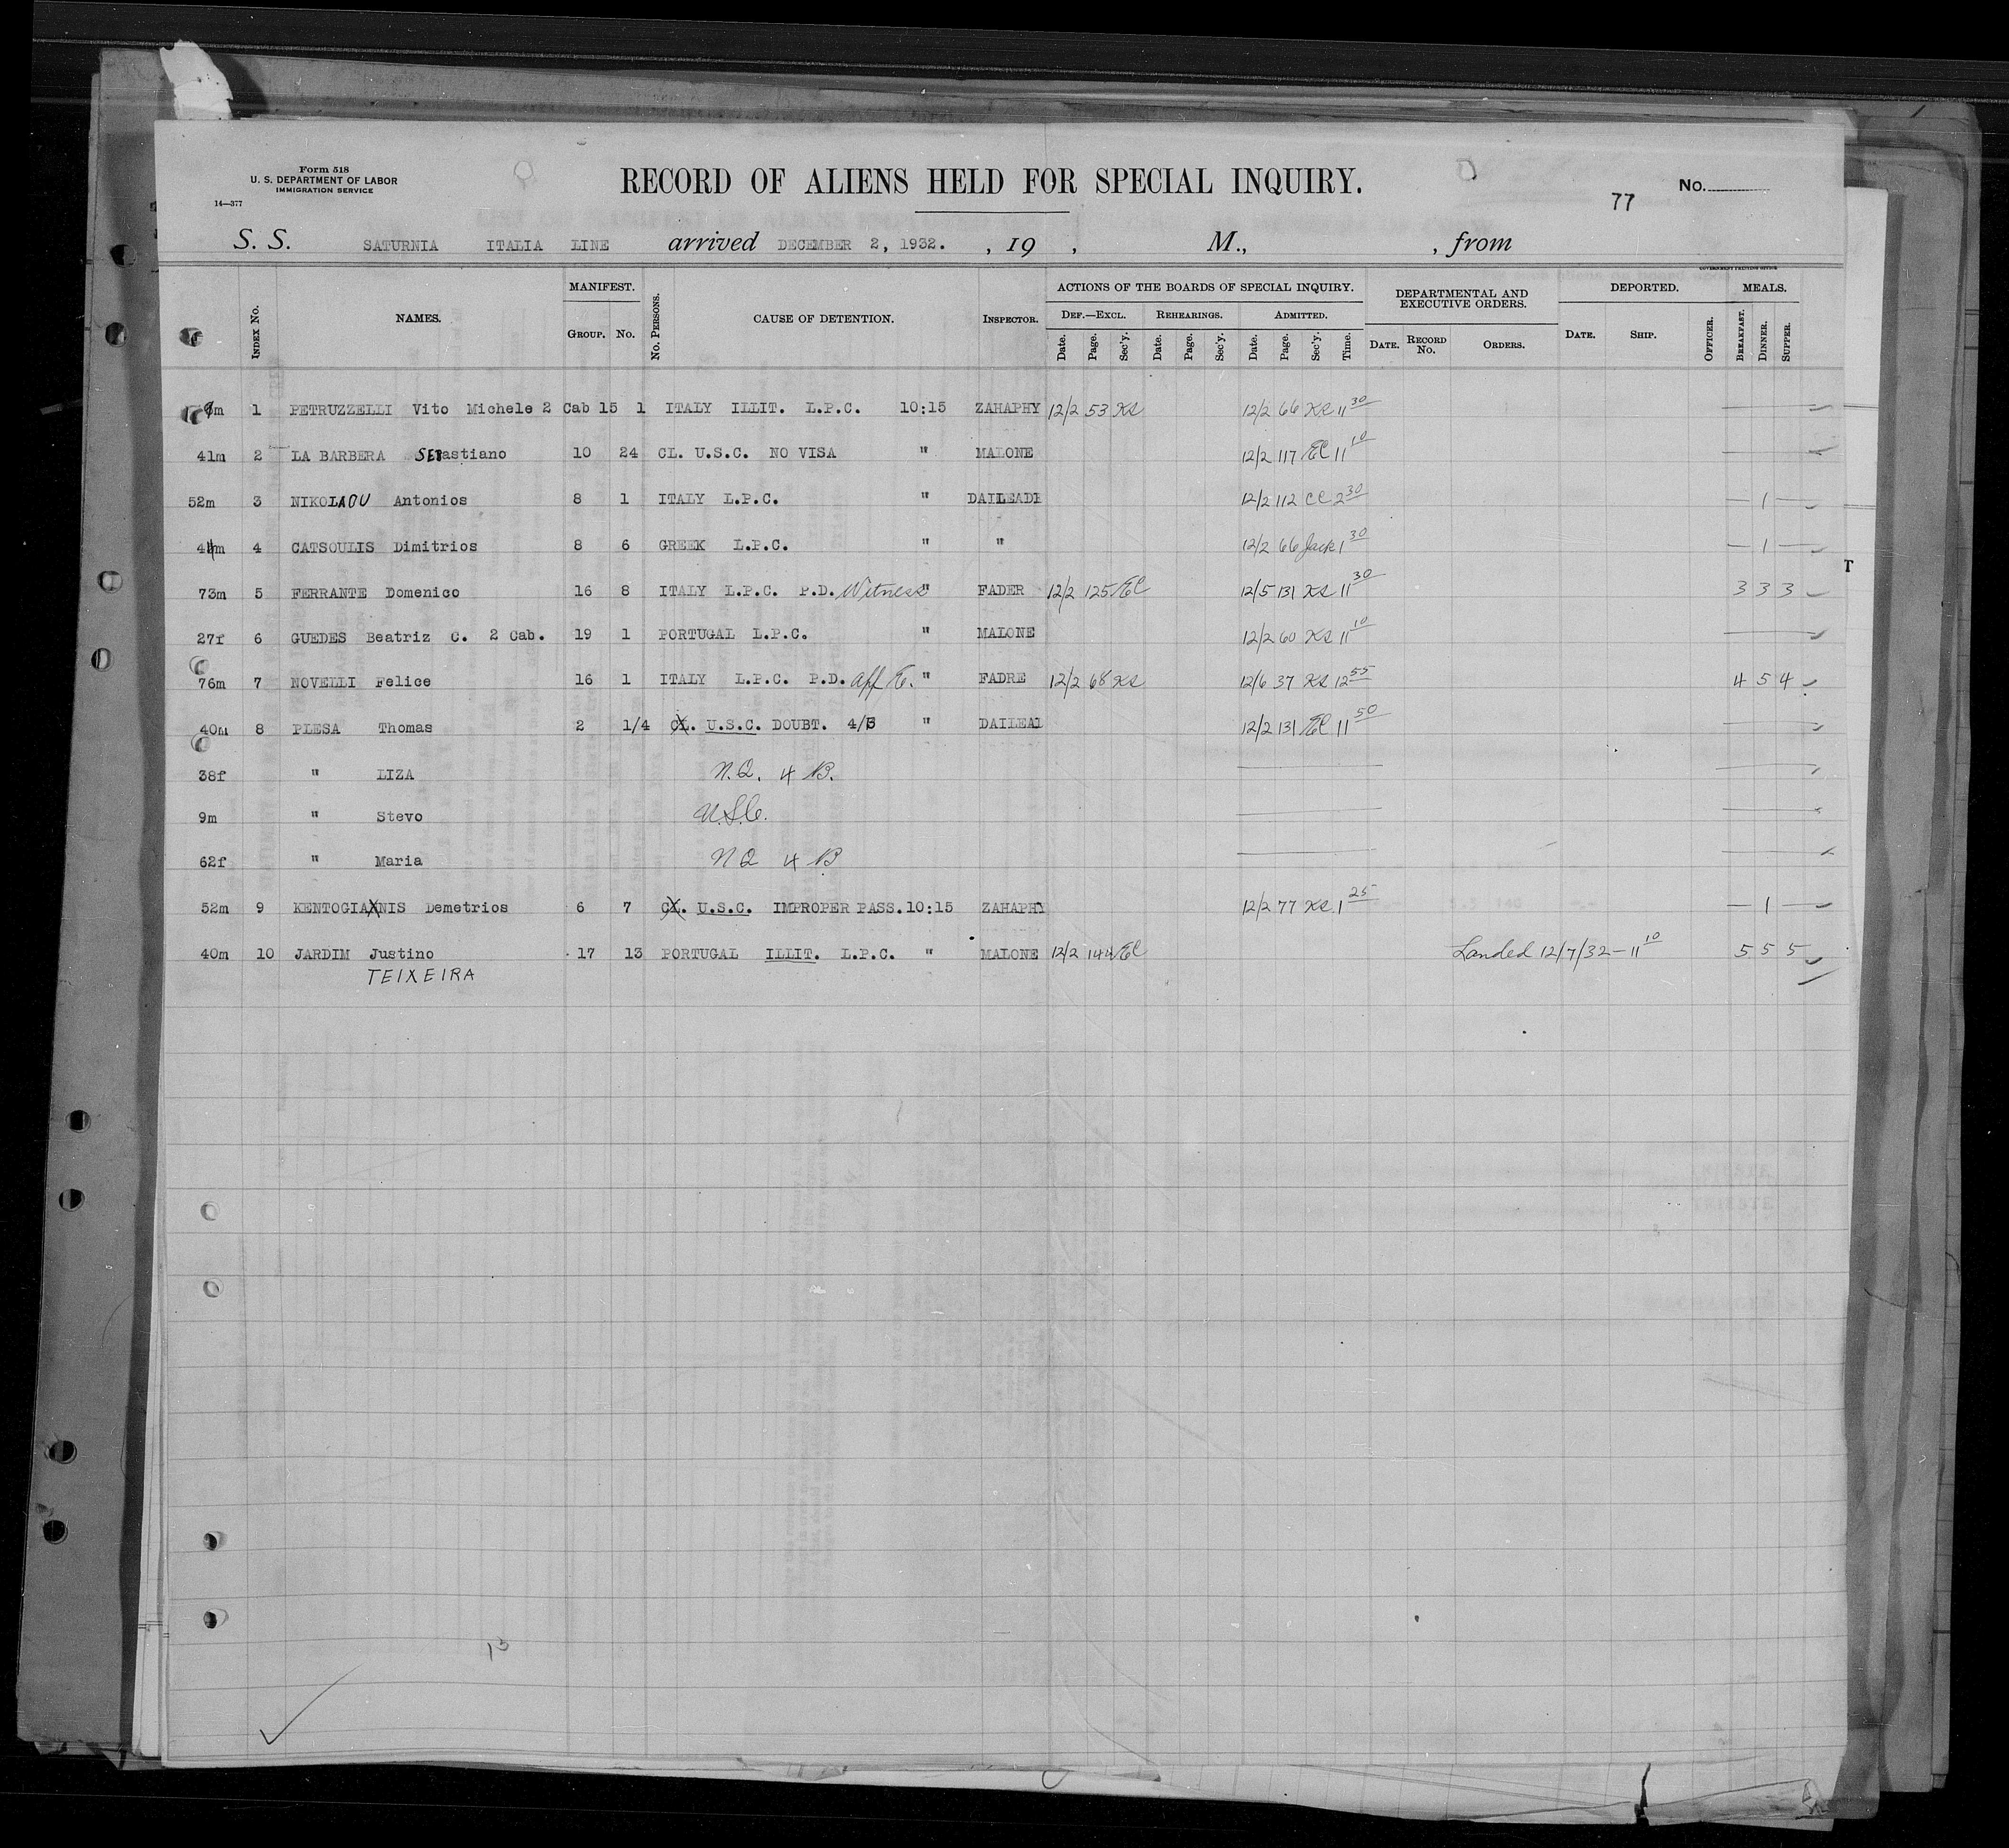 Form 518
U. S. DEPARTMENT OF LABOR
IMMIGRATION SERVICE
14—377
RECORD OF ALIENS HELD FOR SPECIAL INQUIRY.
77
No.
S. S. SATURNIA ITALIA LINE arrived DECEMBER 2, 1932. , 19 , M., , from
GOVERNMENT PRINTING OFFICE
MANIFEST. ACTIONS OF THE BOARDS OF SPECIAL INQUIRY. DEPARTMENTAL AND EXECUTIVE ORDERS. DEPORTED. MEALS.
INDEX No. NAMES. GROUP. No. No. PERSONS. CAUSE OF DETENTION. INSPECTOR. DEF.—EXCL. REHEARINGS. ADMITTED.
Date. Page. Sec'y. Date. Page. Sec'y. Date. Page. Sec'y. Time. DATE. RECORD No. ORDERS. DATE. SHIP. OFFICER. BREAKFAST. DINNER. SUPPER.
1 PETRUZZELLI Vito Michele 2 Cab 15 1 ITALY ILLIT. L.P.C. 10:15 ZAHAPHY 12/2 53 KS 12/2 66 KS 11 30
41m 2 LA BARBERA SEBastiano 10 24 CL. U.S.C. NO VISA " MALONE 12/2 117 EC 11 10
52m 3 NIKOLAOU Antonios 8 1 ITALY L.P.C. " DAILEADE 12/2 112 CC 2 30 — 1 —
4 CATSOULIS Dimitrios 8 6 GREEK L.P.C. " " 12/2 66 Jack 1 30 — 1 —
73m 5 FERRANTE Domenico 16 8 ITALY L.P.C. P.D. Witness " FADER 12/2 125 EC 12/5 131 KS 11 30 3 3 3
27f 6 GUEDES Beatriz C. 2 Cab. 19 1 PORTUGAL L.P.C. " MALONE 12/2 60 KS 11 10
76m 7 NOVELLI Felice 16 1 ITALY L.P.C. P.D. aff E. " FADRE 12/2 68 KS 12/6 37 KS 12 55 4 5 4
40m 8 PLESA Thomas 2 1/4 CL. U.S.C. DOUBT. 4/B " DAILEAD 12/2 131 EC 11 50
38f " LIZA N.Q. 4 B.
9m " Stevo U.S.C.
62f " Maria N Q 4 B
52m 9 KENTOGIANNIS Demetrios 6 7 CL. U.S.C. IMPROPER PASS. 10:15 ZAHAPHY 12/2 77 KS 1 25 — 1 —
40m 10 JARDIM Justino 17 13 PORTUGAL ILLIT. L.P.C. " MALONE 12/2 144 EC Landed 12/7/32 – 11 10 5 5 5
TEIXEIRA
13